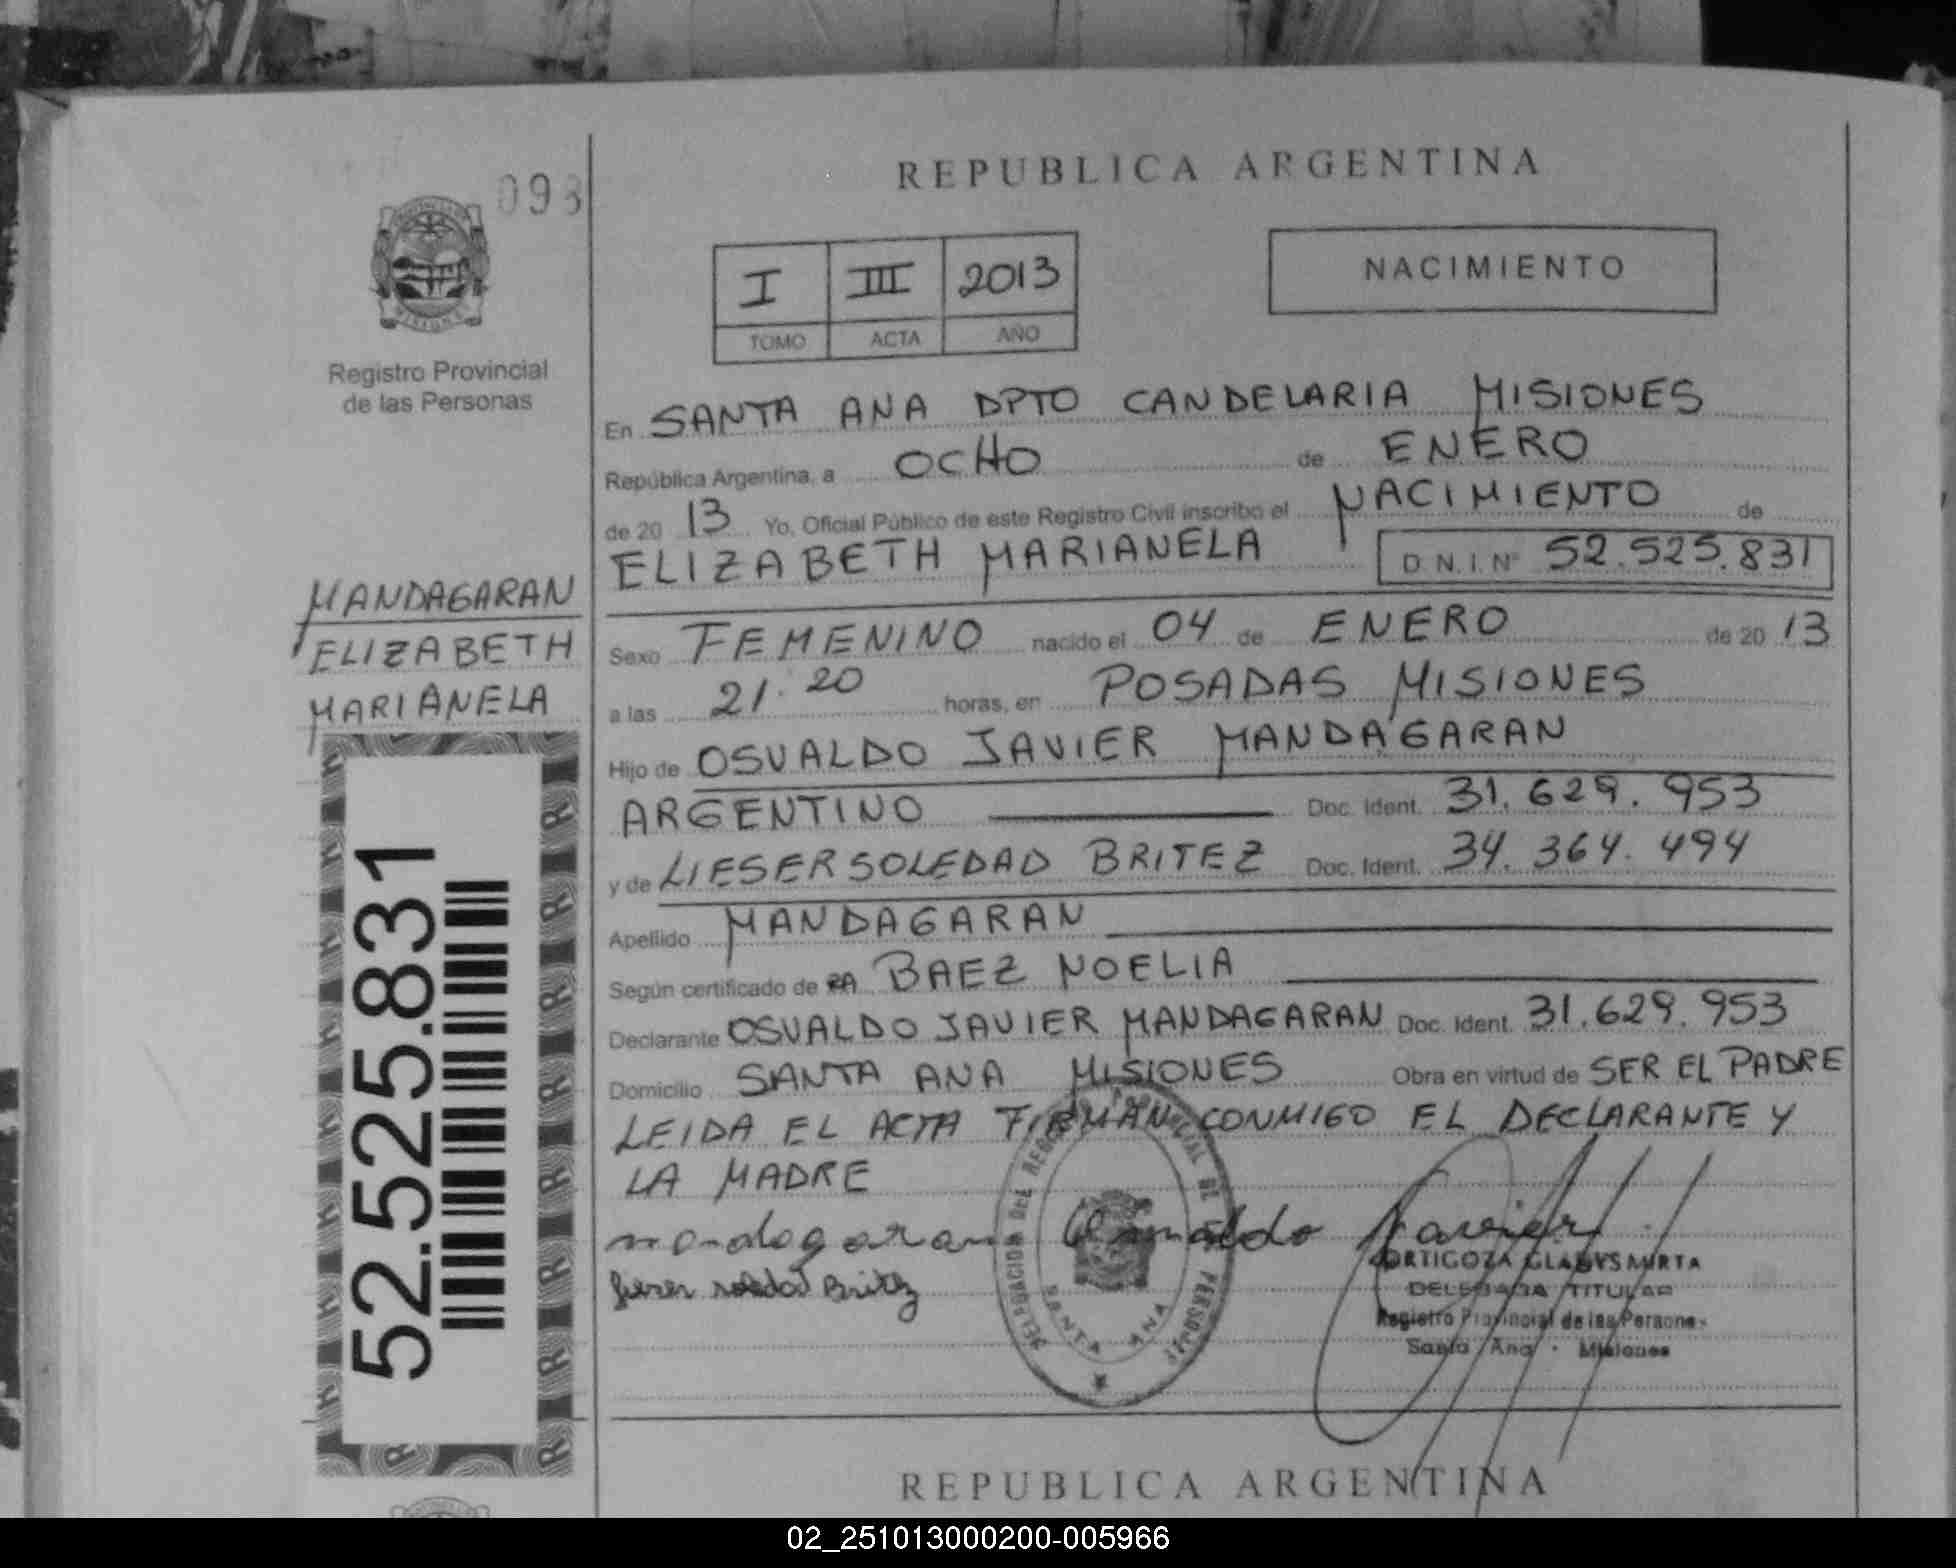 093
REPUBLICA ARGENTINA
I III 2013
TOMO ACTA AÑO
NACIMIENTO
MISIONES
Registro Provincial
de las Personas
En SANTA ANA DPTO CANDELARIA MISIONES
República Argentina, a OCHO de ENERO
de 20 13 Yo, Oficial Público de este Registro Civil inscribo el NACIMIENTO de
ELIZABETH MARIANELA D.N.I. Nº 52.525.831
MANDAGARAN
ELIZABETH
MARIANELA
52.525.831
Sexo FEMENINO nacido el 04 de ENERO de 20 13
a las 21.20 horas, en POSADAS MISIONES
Hijo de OSVALDO JAVIER MANDAGARAN
ARGENTINO Doc. Ident. 31.629.953
y de LIESER SOLEDAD BRITEZ Doc. Ident. 34.364.494
Apellido MANDAGARAN
Según certificado de BAEZ NOELIA
Declarante OSVALDO JAVIER MANDAGARAN Doc. Ident. 31.629.953
Domicilio SANTA ANA MISIONES Obra en virtud de SER EL PADRE
LEIDA EL ACTA FIRMAN CONMIGO EL DECLARANTE Y
LA MADRE
mandagaran Osvaldo Javier
Lieser soledad Britez
DELEGACION DEL REGISTRO PROVINCIAL DE PERSONAS
SANTA ANA
ORTIGOZA GLADYS MIRTA
DELEGADA TITULAR
Registro Provincial de las Personas
Santa Ana - Misiones
REPUBLICA ARGENTINA
02_251013000200-005966